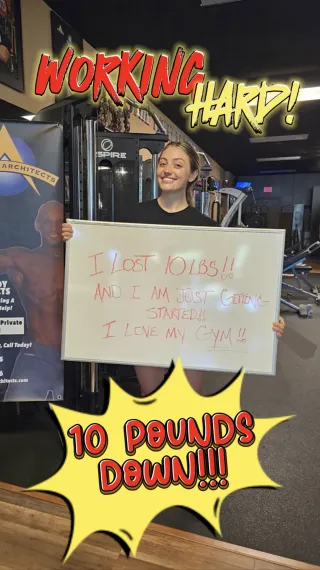 WORKING
HARD!
INSPIRE
ARCHITECTS
I LOST 10 LBS!!
AND I AM JUST GETTING
STARTED!!
I LOVE MY GYM!!
Private
, Call Today!
10 POUNDS
DOWN!!!